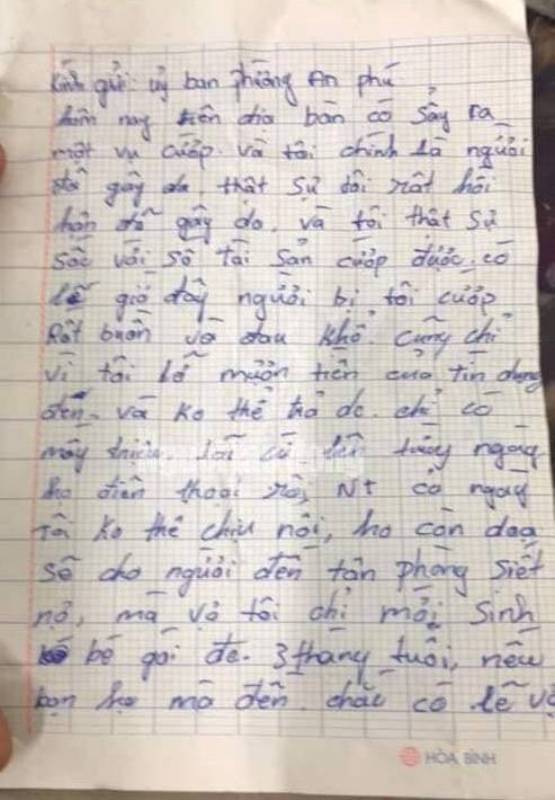 Kính gửi: uỷ ban phường An phú
hôm nay trên địa bàn có sảy ra
một vụ cướp. và tôi chính là người
đã gây da, thật sự tôi rất hối
hận đã gây da, và tôi thật sự
sốc với số tài sản cướp được, có
lẽ giờ đây người bị tôi cướp
Rất buồn và đau khổ. cũng chỉ
vì tôi lỡ mượn tiền của tín dụng
đen. và ko thể trả dc. chỉ có
mấy triệu. lãi cứ lên từng ngày
họ điện thoại rồi NT cả ngày
tôi ko thể chịu nổi, họ còn doạ
sẽ cho người đến tận phòng siết
nợ, mà vợ tôi chỉ mới sinh
bé gái dc. 3 tháng tuổi, nếu
bọn họ mà đến. chắc có lẽ vợ
HÒA BÌNH